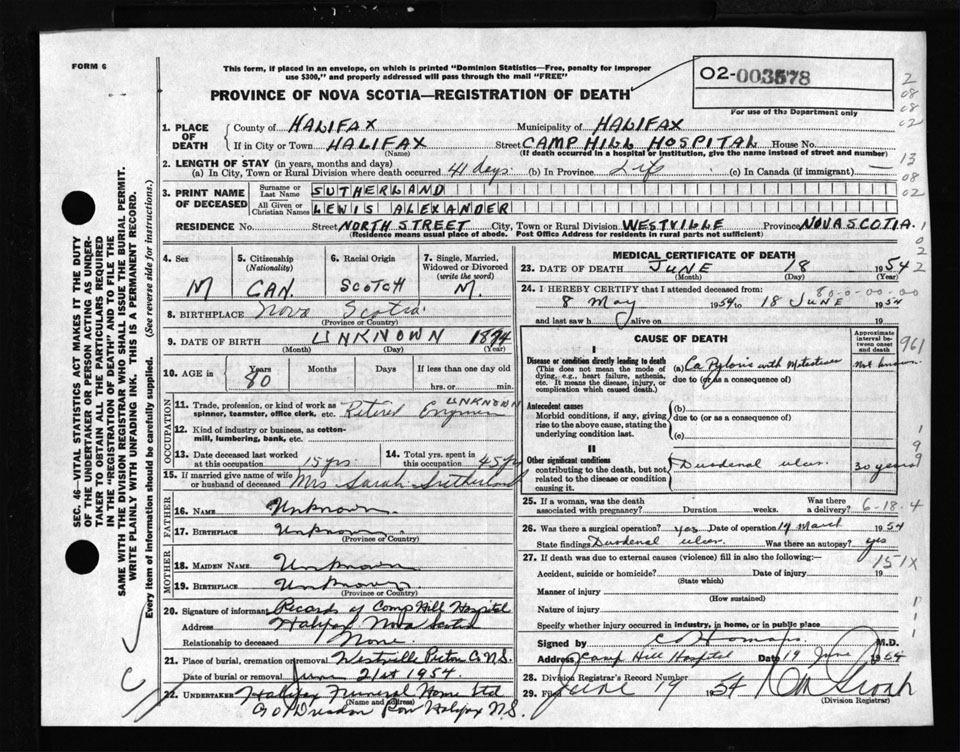 FORM 6
This form, if placed in an envelope, on which is printed "Dominion Statistics—Free, penalty for improper
use $300," and properly addressed will pass through the mail "FREE"
PROVINCE OF NOVA SCOTIA—REGISTRATION OF DEATH
02-003578
For use of the Department only
1. PLACE OF DEATH
County of HALIFAX Municipality of HALIFAX
If in City or Town HALIFAX Street CAMP HILL HOSPITAL House No.
(Name) (If death occurred in a hospital or institution, give the name instead of street and number)
2. LENGTH OF STAY (in years, months and days)
(a) In City, Town or Rural Division where death occurred 41 days. (b) In Province Life (c) In Canada (if immigrant) —
3. PRINT NAME OF DECEASED
Surname or Last Name SUTHERLAND
All Given or Christian Names LEWIS ALEXANDER
RESIDENCE No. Street NORTH STREET City, Town or Rural Division WESTVILLE Province NOVA SCOTIA.
(Residence means usual place of abode. Post Office Address for residents in rural parts not sufficient)
4. Sex M
5. Citizenship (Nationality) CAN.
6. Racial Origin SCOTCH
7. Single, Married, Widowed or Divorced (write the word) M.
8. BIRTHPLACE Nova Scotia.
(Province or Country)
9. DATE OF BIRTH UNKNOWN 1874
(Month) (Day) (Year)
10. AGE in Years 80 Months Days If less than one day
hrs. or min.
OCCUPATION
11. Trade, profession, or kind of work as spinner, teamster, office clerk, etc. Retired UNKNOWN
12. Kind of industry or business, as cotton-mill, lumbering, bank, etc.
13. Date deceased last worked at this occupation 15 yrs.
14. Total yrs. spent in this occupation 45 yrs
15. If married give name of wife or husband of deceased Mrs Sarah Sutherland
FATHER
16. Name Unknown
17. BIRTHPLACE Unknown.
(Province or Country)
MOTHER
18. MAIDEN NAME Unknown
19. BIRTHPLACE Unknown.
(Province or Country)
20. Signature of informant Records of Camp Hill Hospital
Address Halifax Nova Scotia
Relationship to deceased None.
21. Place of burial, cremation or removal Westville Pictou Co. N.S.
Date of burial or removal June 21st 1954.
22. UNDERTAKER Halifax Funeral Home Ltd
(Name and address)
Row Halifax N.S.
MEDICAL CERTIFICATE OF DEATH
23. DATE OF DEATH JUNE 18 1954
(Month) (Day) (Year)
24. I HEREBY CERTIFY that I attended deceased from:
8 May 1954 to 18 June 1954
and last saw h alive on 19
CAUSE OF DEATH
Approximate interval between onset and death
I
Disease or condition directly leading to death
(This does not mean the mode of dying, e.g., heart failure, asthenia, etc. It means the disease, injury, or complication which caused death.)
(a) Ca Pyloris with Metastases
due to (or as a consequence of)
Antecedent causes
Morbid conditions, if any, giving rise to the above cause, stating the underlying condition last.
(b)
due to (or as a consequence of)
(c)
II
Other significant conditions
contributing to the death, but not related to the disease or condition causing it.
Duodenal ulcer. 30 years
25. If a woman, was the death associated with pregnancy? Duration weeks. Was there a delivery?
6-18-4
26. Was there a surgical operation? yes Date of operation 14 March 1954
State findings Duodenal ulcer. Was there an autopsy? yes
27. If death was due to external causes (violence) fill in also the following:—
151X
Accident, suicide or homicide? Date of injury 19
(State which)
Manner of injury
(How sustained)
Nature of injury
Specify whether injury occurred in industry, in home, or in public place
Signed by M.D.
Address Camp Hill Hospital Date 19 June 1954
28. Division Registrar's Record Number
29. Filed June 19 1954
(Division Registrar)
SEC. 46—VITAL STATISTICS ACT MAKES IT THE DUTY
OF THE UNDERTAKER OR PERSON ACTING AS UNDER-
TAKER TO OBTAIN ALL THE PARTICULARS REQUIRED
IN THE "REGISTRATION OF DEATH" AND TO FILE THE
SAME WITH THE DIVISION REGISTRAR WHO SHALL ISSUE THE BURIAL PERMIT.
WRITE PLAINLY WITH UNFADING INK. THIS IS A PERMANENT RECORD.
Every item of information should be carefully supplied. (See reverse side for instructions.)